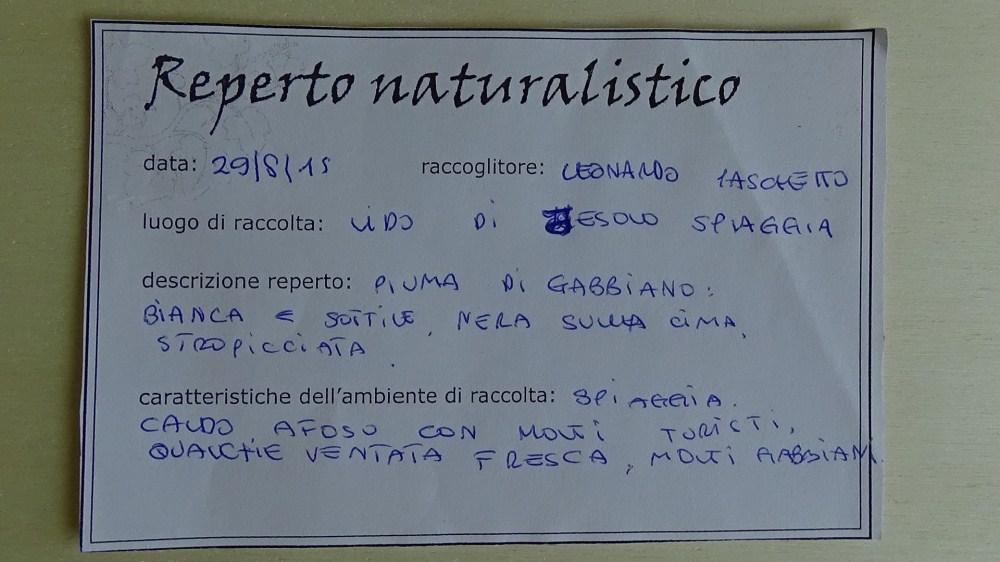 Reperto naturalistico
data: 29/8/15 raccoglitore: LEONARDO
luogo di raccolta: LIDO DI JESOLO SPIAGGIA
descrizione reperto: PIUMA DI GABBIANO:
BIANCA E SOTTILE, NERA SULLA CIMA,
STROPICCIATA.
caratteristiche dell'ambiente di raccolta: SPIAGGIA.
CALDO AFOSO CON MOLTI TURISTI,
QUALCHE VENTATA FRESCA, MOLTI GABBIANI.